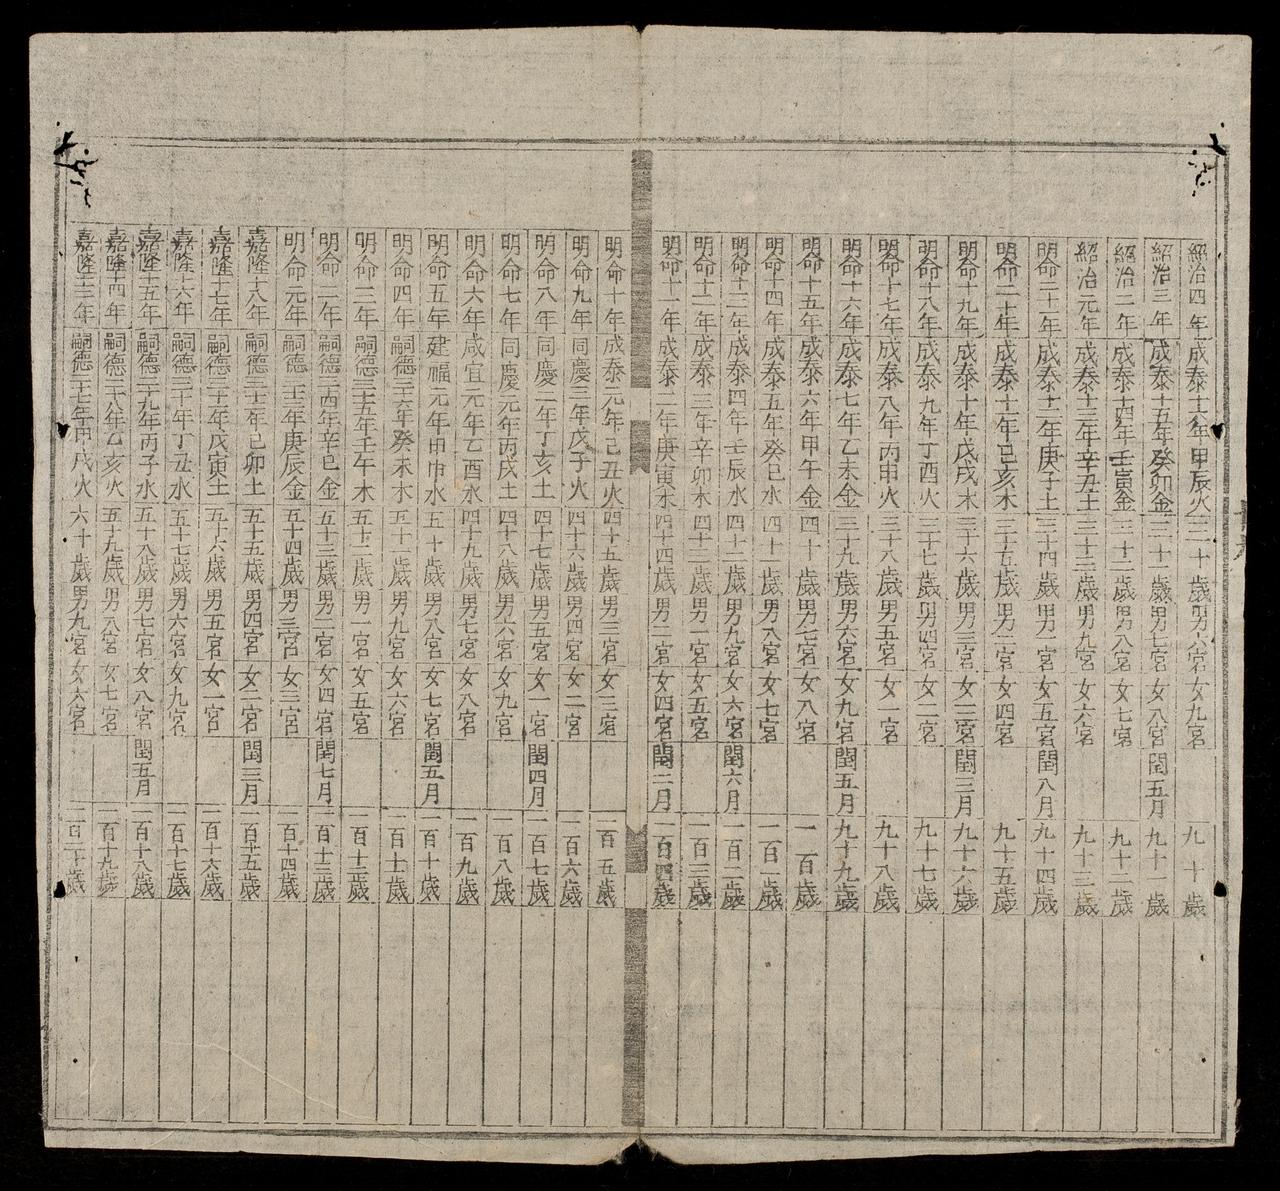 紹治四年成泰十六年甲辰火三十歲男六宮女九宮九十歲
紹治三年成泰十五年癸卯金三十一歲男七宮女八宮閏五月九十一歲
紹治二年成泰十四年壬寅金三十二歲男八宮女七宮九十二歲
紹治元年成泰十三年辛丑土三十三歲男九宮女六宮九十三歲
明命二十一年成泰十二年庚子土三十四歲男一宮女五宮閏八月九十四歲
明命二十年成泰十一年己亥木三十五歲男二宮女四宮九十五歲
明命十九年成泰十年戊戌木三十六歲男三宮女三宮閏三月九十六歲
明命十八年成泰九年丁酉火三十七歲男四宮女二宮九十七歲
明命十七年成泰八年丙申火三十八歲男五宮女一宮九十八歲
明命十六年成泰七年乙未金三十九歲男六宮女九宮閏五月九十九歲
明命十五年成泰六年甲午金四十歲男七宮女八宮一百歲
明命十四年成泰五年癸巳水四十一歲男八宮女七宮一百一歲
明命十三年成泰四年壬辰水四十二歲男九宮女六宮閏六月一百二歲
明命十二年成泰三年辛卯木四十三歲男一宮女五宮一百三歲
明命十一年成泰二年庚寅木四十四歲男二宮女四宮閏二月一百四歲
明命十年成泰元年己丑火四十五歲男三宮女三宮一百五歲
明命九年同慶三年戊子火四十六歲男四宮女二宮一百六歲
明命八年同慶二年丁亥土四十七歲男五宮女一宮閏四月一百七歲
明命七年同慶元年丙戌土四十八歲男六宮女九宮一百八歲
明命六年咸宜元年乙酉水四十九歲男七宮女八宮一百九歲
明命五年建福元年甲申水五十歲男八宮女七宮閏五月一百十歲
明命四年嗣德三十六年癸未木五十一歲男九宮女六宮一百十一歲
明命三年嗣德三十五年壬午木五十二歲男一宮女五宮一百十二歲
明命二年嗣德三十四年辛巳金五十三歲男二宮女四宮閏七月一百十三歲
明命元年嗣德三十三年庚辰金五十四歲男三宮女三宮一百十四歲
嘉隆十八年嗣德三十二年己卯土五十五歲男四宮女二宮閏三月一百十五歲
嘉隆十七年嗣德三十一年戊寅土五十六歲男五宮女一宮一百十六歲
嘉隆十六年嗣德三十年丁丑水五十七歲男六宮女九宮一百十七歲
嘉隆十五年嗣德二十九年丙子水五十八歲男七宮女八宮閏五月一百十八歲
嘉隆十四年嗣德二十八年乙亥火五十九歲男八宮女七宮一百十九歲
嘉隆十三年嗣德二十七年甲戌火六十歲男九宮女六宮一百二十歲